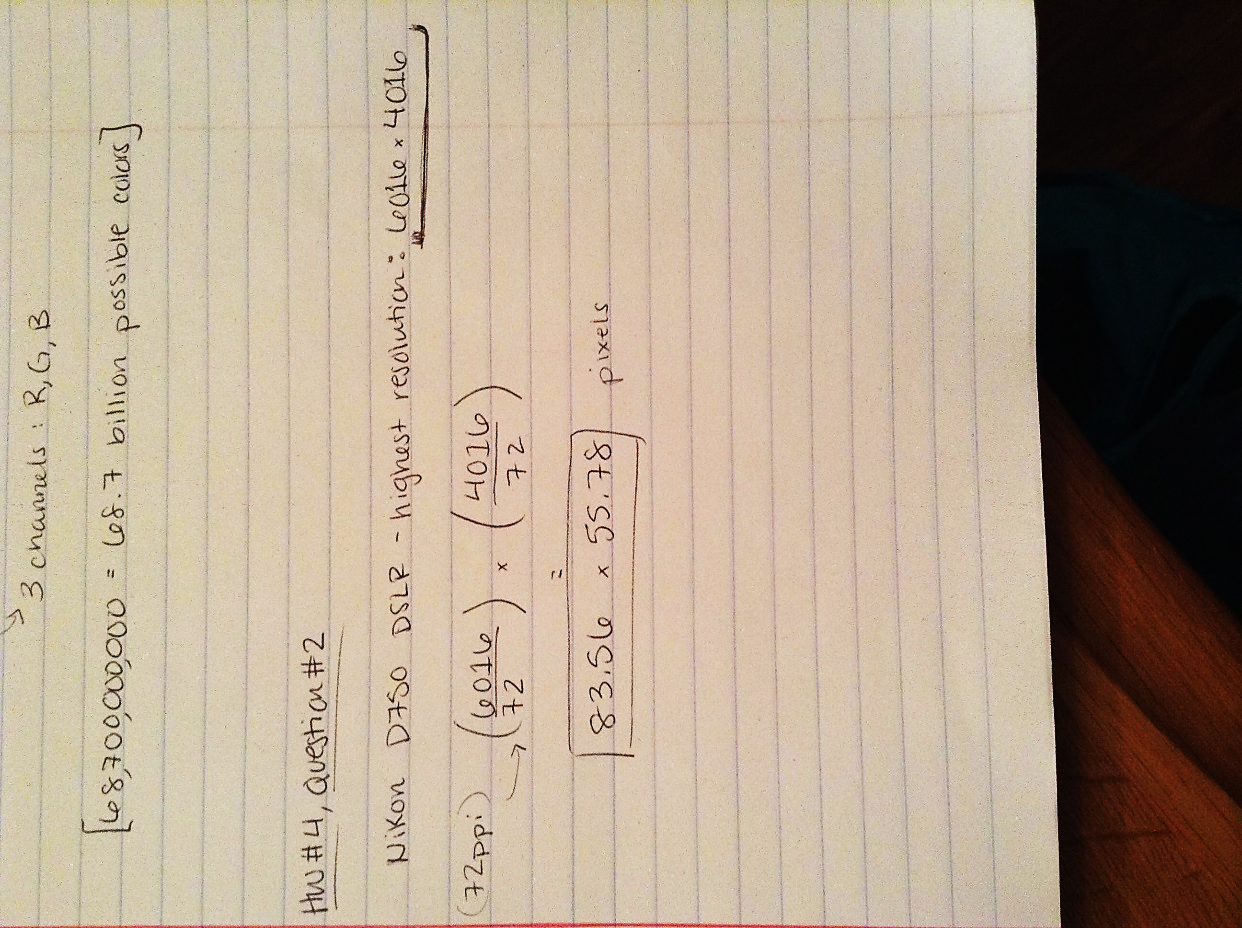 → 3 channels : R, G, B
[68,700,000,000 = 68.7 billion possible colors]
HW #4, Question #2
Nikon D750 DSLR - highest resolution: 6016 x 4016
(72ppi) → (6016/72) x (4016/72)
=
83.56 x 55.78 pixels